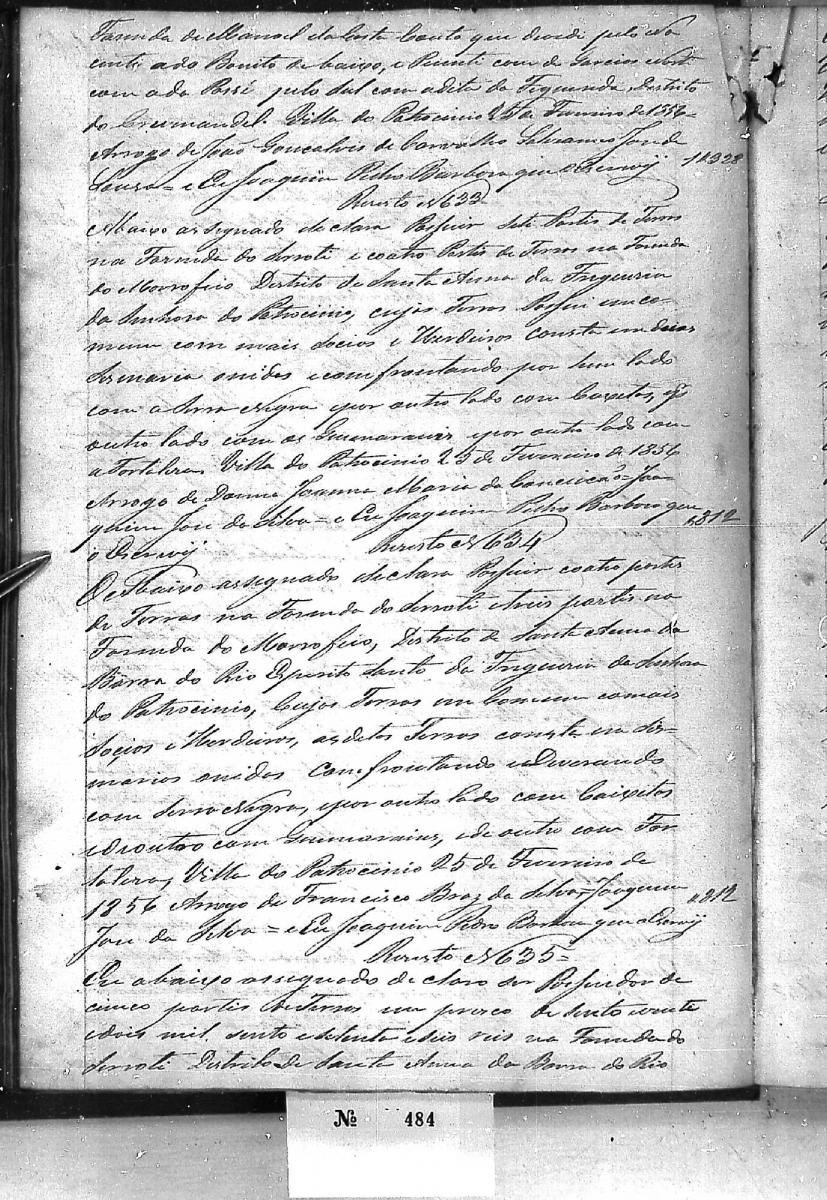 Fazenda de Manoel da Costa Couto que devide pelo Na
cente a do Bonito de baixo, e Puente com de Garcias e Norte
com a da Posse pelo sul com a dita da Figueirda, Destrito
do Coromandel. Villa do Patrocinio 25 de Fevreiro de 1856=
Arrogo de João Gonçalvis de Carvalho Silvano José de
Souza = e Eu Joaquim Pedro Barbosa que o Escrevÿ 1$328
Rezisto Nº 633
Abaixo assignado declara Possuir sete Partes de Terras
na Fazenda do Serrote e coatro Partes de Terras na Fazenda
do Morro feio Destrito de Santa Anna da Freguezia
da Senhora do Patrocinio, cujas Terras Possui em co-
mum com mais socios e Herdeiros consta em duas
Sesmaria onidas e comfrontando por hum lado
com a Serra Negra e por outro lado com Caixetas, e p
outro lado com os Guimarains e por outo lado com
a Fortaleza Villa do Patrocinio 25 de Fevreiro de 1856
Arrogo de Donna Joanna Maria da Conceicão = Joa
quim José da Silva = e Eu Joaquim Pedro Barbosa que $812
o Escrevÿ Rezisto Nº 634
O Abaixo assegnado declara Possuir coatro partes
de Terras na Fazenda do Serrote e treis partes na
Fazenda do Morro feio, Destrito de Santa Anna da
Barra do Rio Esperito Santo da Freguezia da Senhora
do Patrocinio, Cujas Terras em Comum comais
Soçios e Herdeiros, as detas Terras consta em Ses-
marias onidas Comfrontando e Deverando
com Serra Negra, e por outro lado com Caixetas
e de outro com Guimarains, e de outro com For
taleza, Villa do Patrocinio 25 de Fevreiro de
1856 Arrogo de Francisco Braz da Silva, Joaquim $812
José da Silva = e Eu Joaquim Pedro Barbosa que o Escrevÿ
Rezisto Nº 635=
Eu abaixo assegnado declaro ser Possuidor de
cinco partes de Terras em preco de sento e vinte
e dois mil sento e setenta e seis reis na Fazenda do
Serrote Destrito de Santa Anna da Barra do Rio
Nº 484